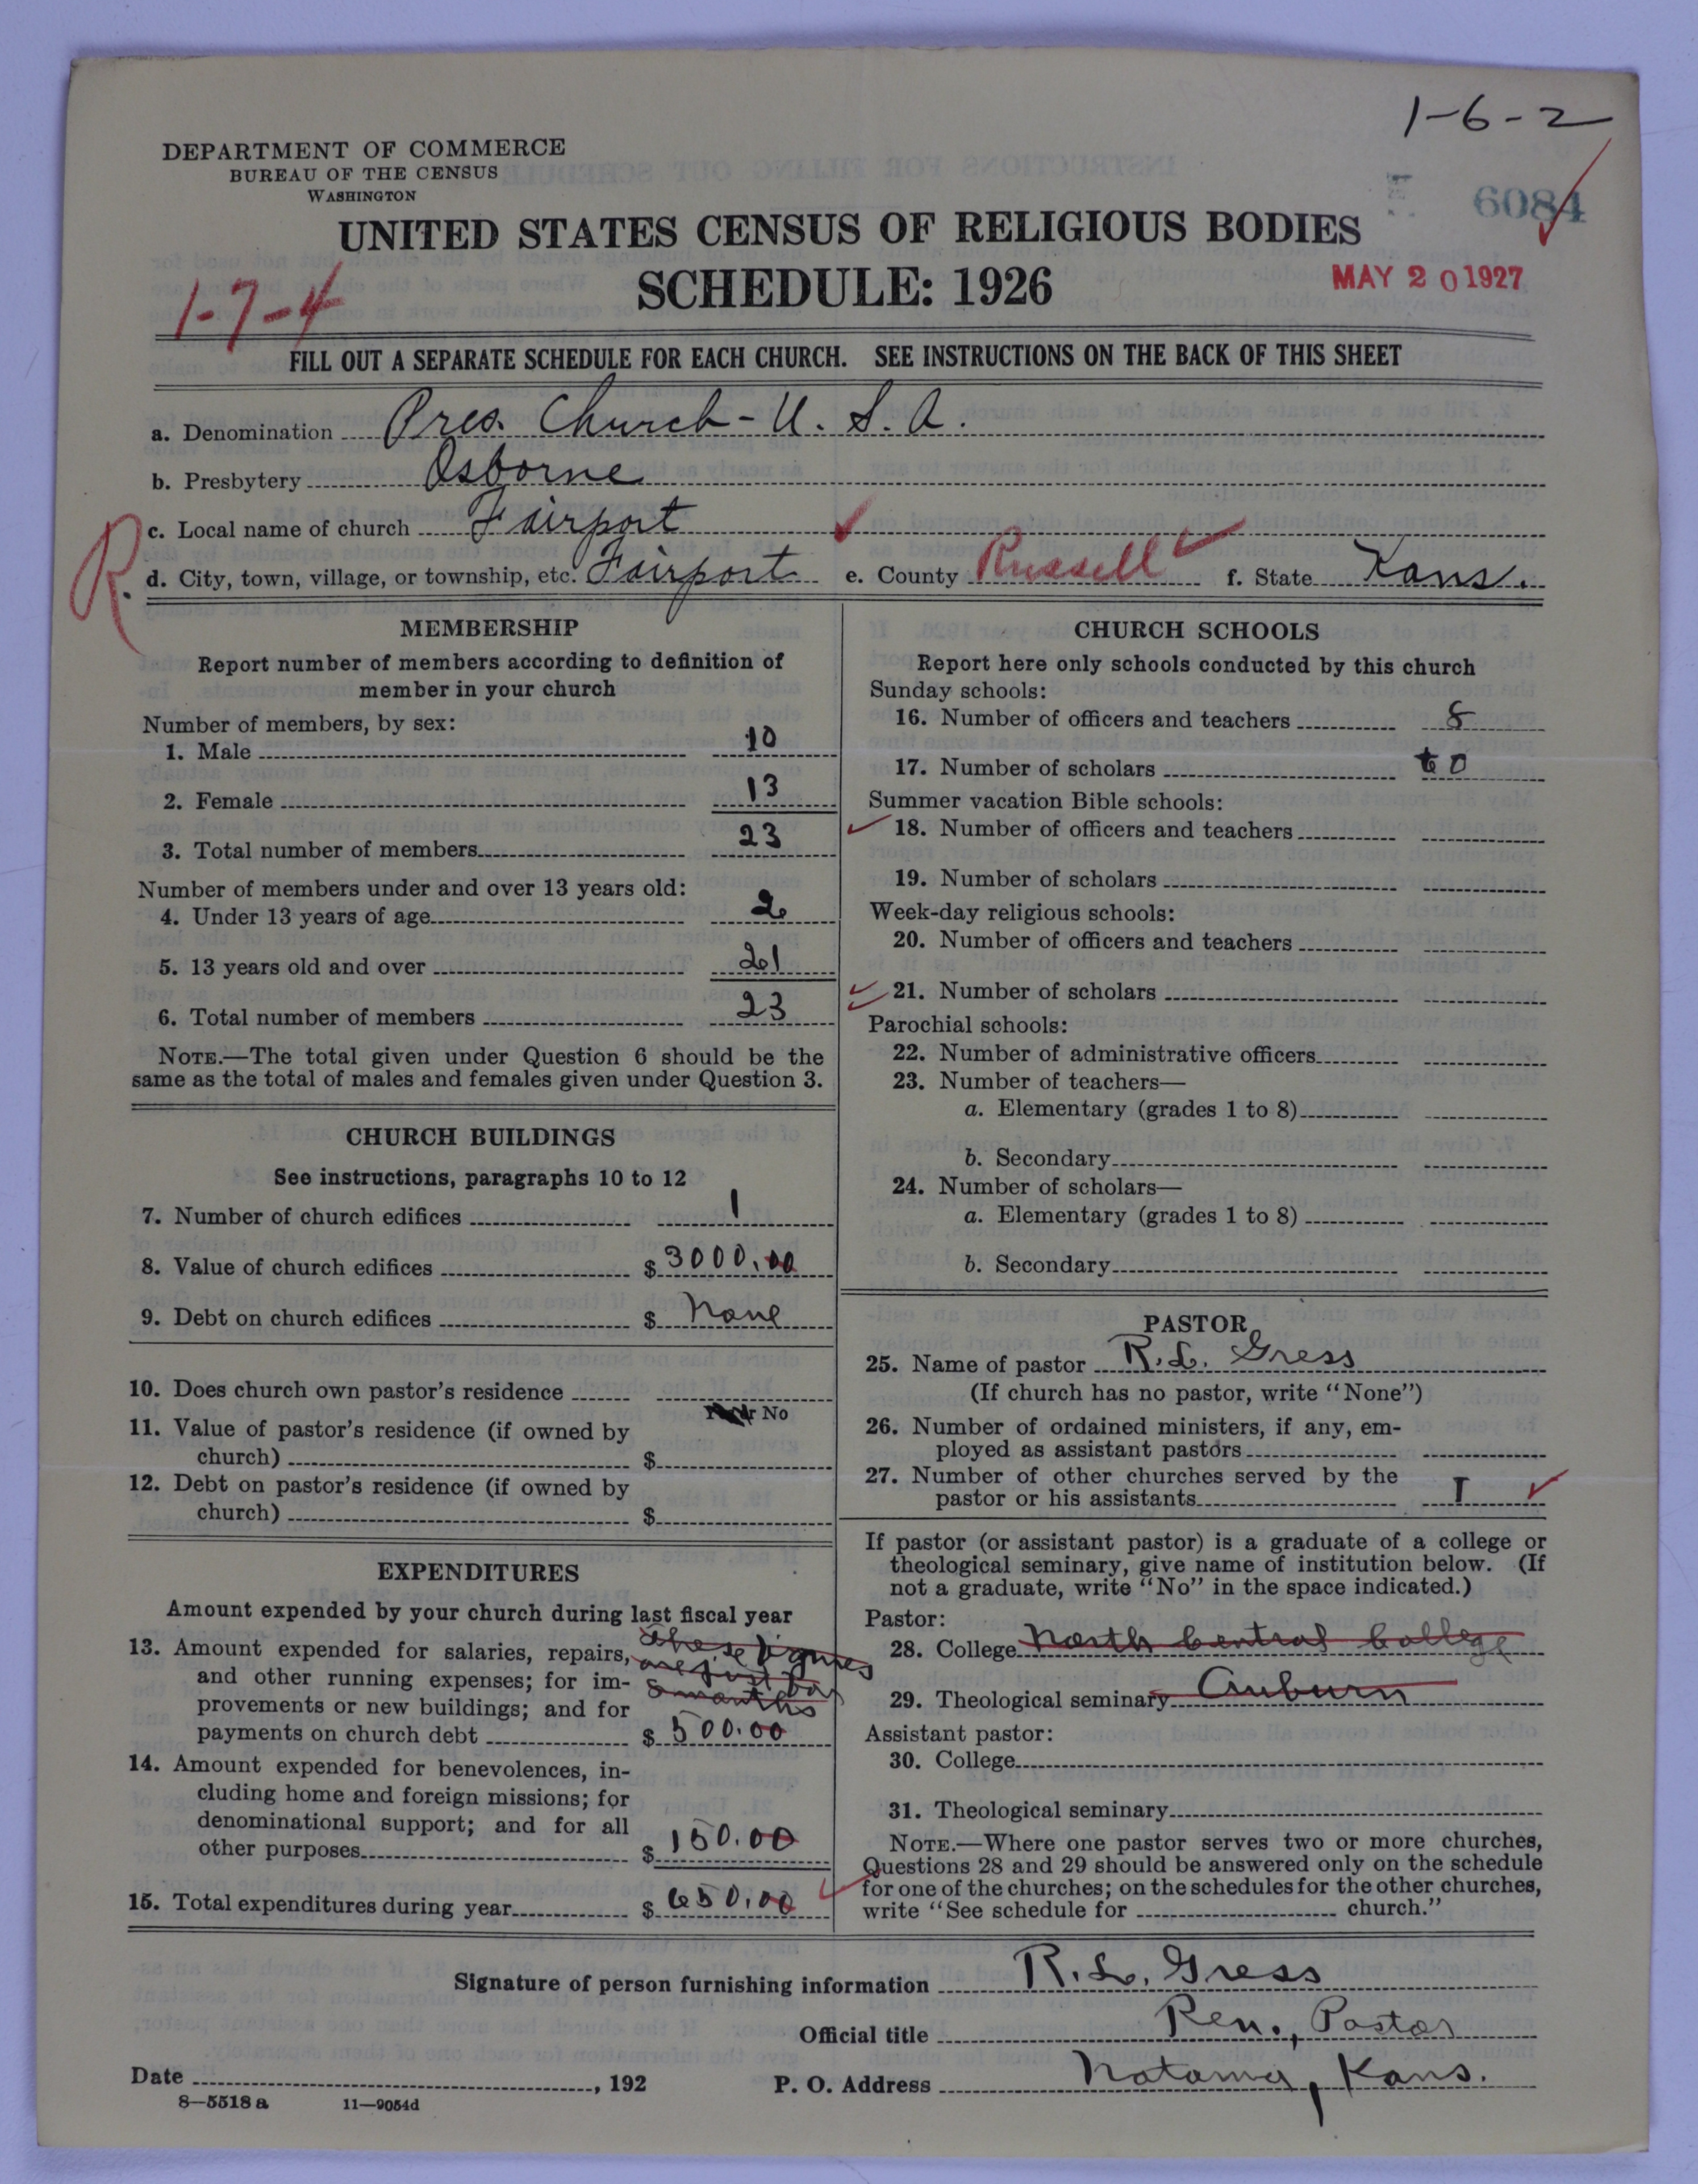 1-6-2
DEPARTMENT OF COMMERCE
BUREAU OF THE CENSUS
WASHINGTON
6084
UNITED STATES CENSUS OF RELIGIOUS BODIES
SCHEDULE: 1926
MAY 20 1927
1-7-4
FILL OUT A SEPARATE SCHEDULE FOR EACH CHURCH. SEE INSTRUCTIONS ON THE BACK OF THIS SHEET
a. Denomination Pres. Church - U. S. A.
b. Presbytery Osborne
c. Local name of church Fairport
R. d. City, town, village, or township, etc. Fairport e. County Russell f. State Kans.
MEMBERSHIP
Report number of members according to definition of
member in your church
Number of members, by sex:
1. Male 10
2. Female 13
3. Total number of members 23
Number of members under and over 13 years old:
4. Under 13 years of age 2
5. 13 years old and over 21
6. Total number of members 23
NOTE.—The total given under Question 6 should be the
same as the total of males and females given under Question 3.
CHURCH BUILDINGS
See instructions, paragraphs 10 to 12
7. Number of church edifices 1
8. Value of church edifices $ 3000.00
9. Debt on church edifices $ None
10. Does church own pastor's residence
No
11. Value of pastor's residence (if owned by
church) $
12. Debt on pastor's residence (if owned by
church) $
EXPENDITURES
Amount expended by your church during last fiscal year
13. Amount expended for salaries, repairs, these figures
and other running expenses; for im- are just for
provements or new buildings; and for 8 months
payments on church debt $ 500.00
14. Amount expended for benevolences, in-
cluding home and foreign missions; for
denominational support; and for all
other purposes $ 150.00
15. Total expenditures during year $ 650.00
CHURCH SCHOOLS
Report here only schools conducted by this church
Sunday schools:
16. Number of officers and teachers 8
17. Number of scholars
Summer vacation Bible schools:
18. Number of officers and teachers
19. Number of scholars
Week-day religious schools:
20. Number of officers and teachers
21. Number of scholars
Parochial schools:
22. Number of administrative officers
23. Number of teachers—
a. Elementary (grades 1 to 8)
b. Secondary
24. Number of scholars—
a. Elementary (grades 1 to 8)
b. Secondary
PASTOR
25. Name of pastor R. L. Gress
(If church has no pastor, write "None")
26. Number of ordained ministers, if any, em-
ployed as assistant pastors
27. Number of other churches served by the
pastor or his assistants I
If pastor (or assistant pastor) is a graduate of a college or
theological seminary, give name of institution below. (If
not a graduate, write "No" in the space indicated.)
Pastor:
28. College North Central College
29. Theological seminary Auburn
Assistant pastor:
30. College
31. Theological seminary
NOTE.—Where one pastor serves two or more churches,
Questions 28 and 29 should be answered only on the schedule
for one of the churches; on the schedules for the other churches,
write "See schedule for church."
Signature of person furnishing information R. L. Gress
Official title Rev., Pastor
Date , 192 P. O. Address Natoma, Kans.
8—5518 a 11—9054d